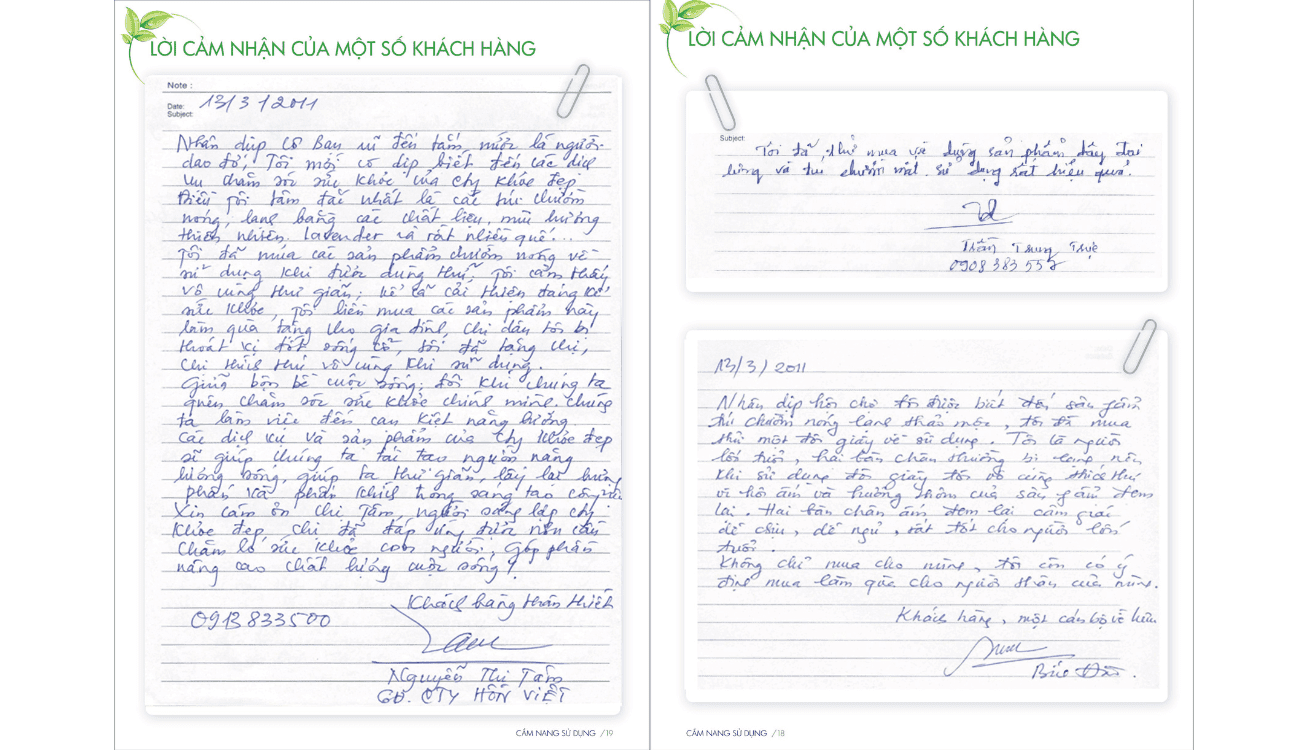 LỜI CẢM NHẬN CỦA MỘT SỐ KHÁCH HÀNG
Note :
Date: 13/3/2011
Subject:
Nhân dịp cô bạn rủ đến tắm, mướt là người
dao đỏ, Tôi mới có dịp biết đến các dịch
vụ chăm sóc sức khỏe của Cty Khỏe Đẹp
Điều tôi tâm đắc nhất là các túi chườm
nóng, lạnh bằng các chất liệu, mùi hương
thiên nhiên. lavender và rất nhiều quế...
Tôi đã mua các sản phẩm chườm nóng về
sử dụng khi được dùng thử, Tôi cảm thấy
vô cùng thư giãn, kể cả cải thiện đáng kể
sức khỏe, Tôi liền mua các sản phẩm này
làm quà tặng cho gia đình, chị dâu tôi bị
thoát vị đốt sống cổ, tôi đã tặng chị,
chị thích thú vô cùng khi sử dụng.
Giữa bộn bề cuộc sống, đôi khi chúng ta
quên chăm sóc sức khỏe chính mình. chúng
ta làm việc đến cạn kiệt năng lượng.
Các dịch vụ và sản phẩm của Cty Khỏe đẹp
sẽ giúp chúng ta tái tạo nguồn năng
lượng sống, giúp ta thư giãn, lấy lại hưng
phấn và phấn khích trong sáng tạo công việc
Xin cảm ơn chị Tâm, người sáng lập cty
Khỏe đẹp, chị đã đáp ứng được nhu cầu
chăm lo sức khỏe con người, góp phần
nâng cao chất lượng cuộc sống!
Khách hàng thân thiết
0913833500
Nguyễn Thị Tâm
GĐ. CTY HỒN VIỆT
CẨM NANG SỬ DỤNG /19
LỜI CẢM NHẬN CỦA MỘT SỐ KHÁCH HÀNG
Subject:
Tôi đã thử mua về dụng sản phẩm đây đai
lưng và túi chườm mắt. sử dụng rất hiệu quả.
Trần Trung Trực
0908 383 557
13/3/2011
Nhân dịp hội chợ tôi được biết đến sản phẩm
túi chườm nóng lạnh thảo mộc, tôi đã mua
thử một đôi giày về sử dụng. Tôi là người
lớn tuổi, hai bàn chân thường bị lạnh nên
khi sử dụng đôi giày tôi vô cùng thích thú
vì hơi ấm và hương thơm của sản phẩm đem
lại. Hai bàn chân ấm đem lại cảm giác
dễ chịu, dễ ngủ, rất tốt cho người lớn
tuổi.
Không chỉ mua cho mình, tôi còn có ý
định mua làm quà cho người thân của mình.
Khách hàng, một cán bộ về hưu
CẨM NANG SỬ DỤNG /18